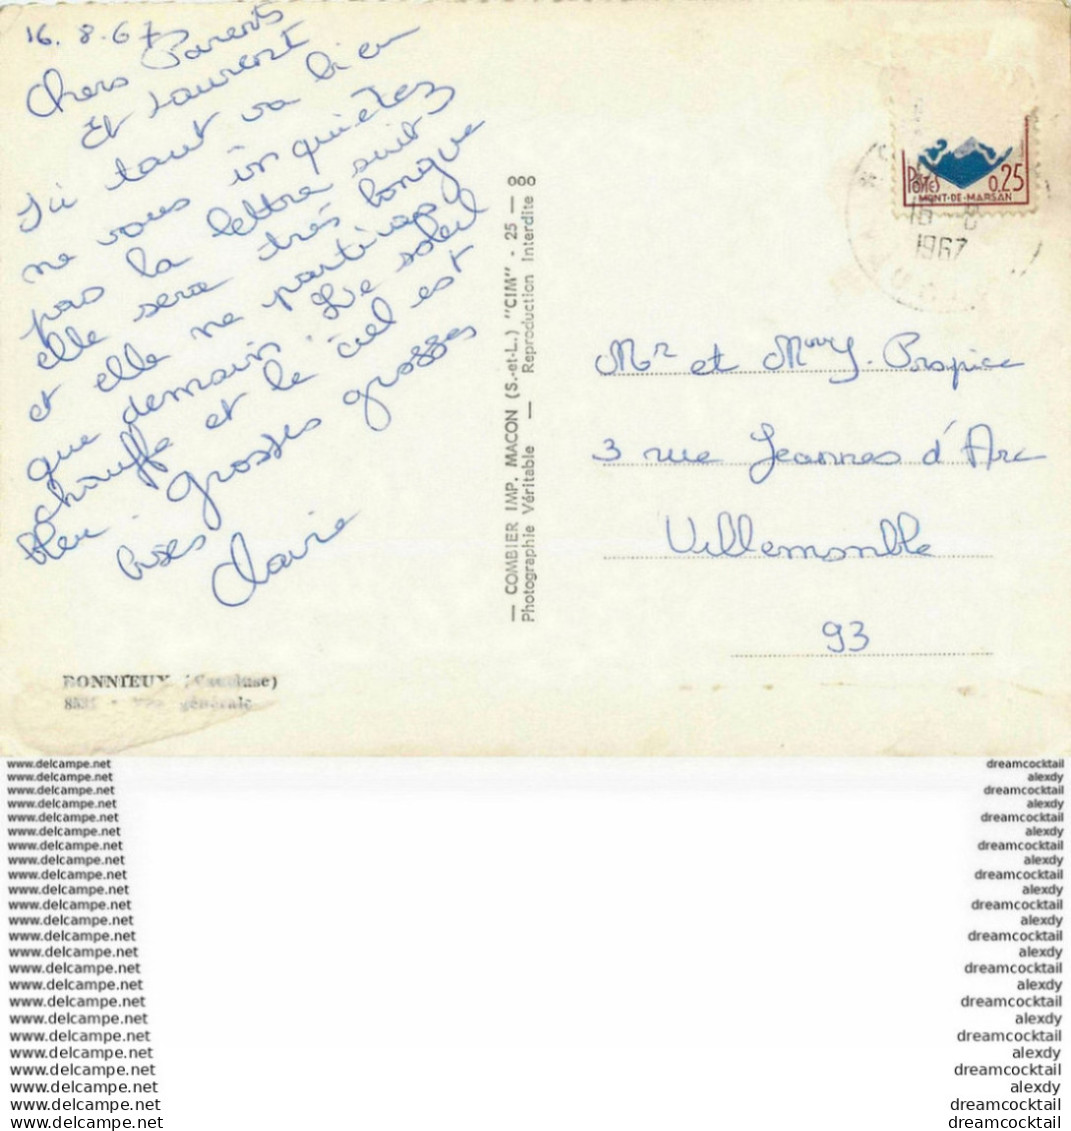 16.8.67
Chers Parents
Et Laurent
Ici tout va bien
ne vous inquiétez
pas la lettre suit
elle sera très longue
et elle ne partira
que demain. Le soleil
chauffe et le ciel est
bleu. grosses grosses
bises
Claire
BONNIEUX (Vaucluse)
générale
— COMBIER IMP. MACON (S.-et-L.) "CIM" - 25 —
Photographie Véritable — Reproduction Interdite
POSTES 0.25
MONT-DE-MARSAN
16 8
1967
Mr et Mme J. Prospice
3 rue Jeannes d'Arc
Villemomble
93
www.delcampe.net
www.delcampe.net
www.delcampe.net
www.delcampe.net
www.delcampe.net
www.delcampe.net
www.delcampe.net
www.delcampe.net
www.delcampe.net
www.delcampe.net
www.delcampe.net
www.delcampe.net
www.delcampe.net
www.delcampe.net
www.delcampe.net
www.delcampe.net
www.delcampe.net
www.delcampe.net
www.delcampe.net
www.delcampe.net
www.delcampe.net
www.delcampe.net
www.delcampe.net
www.delcampe.net
dreamcocktail
alexdy
dreamcocktail
alexdy
dreamcocktail
alexdy
dreamcocktail
alexdy
dreamcocktail
alexdy
dreamcocktail
alexdy
dreamcocktail
alexdy
dreamcocktail
alexdy
dreamcocktail
alexdy
dreamcocktail
alexdy
dreamcocktail
alexdy
dreamcocktail
dreamcocktail